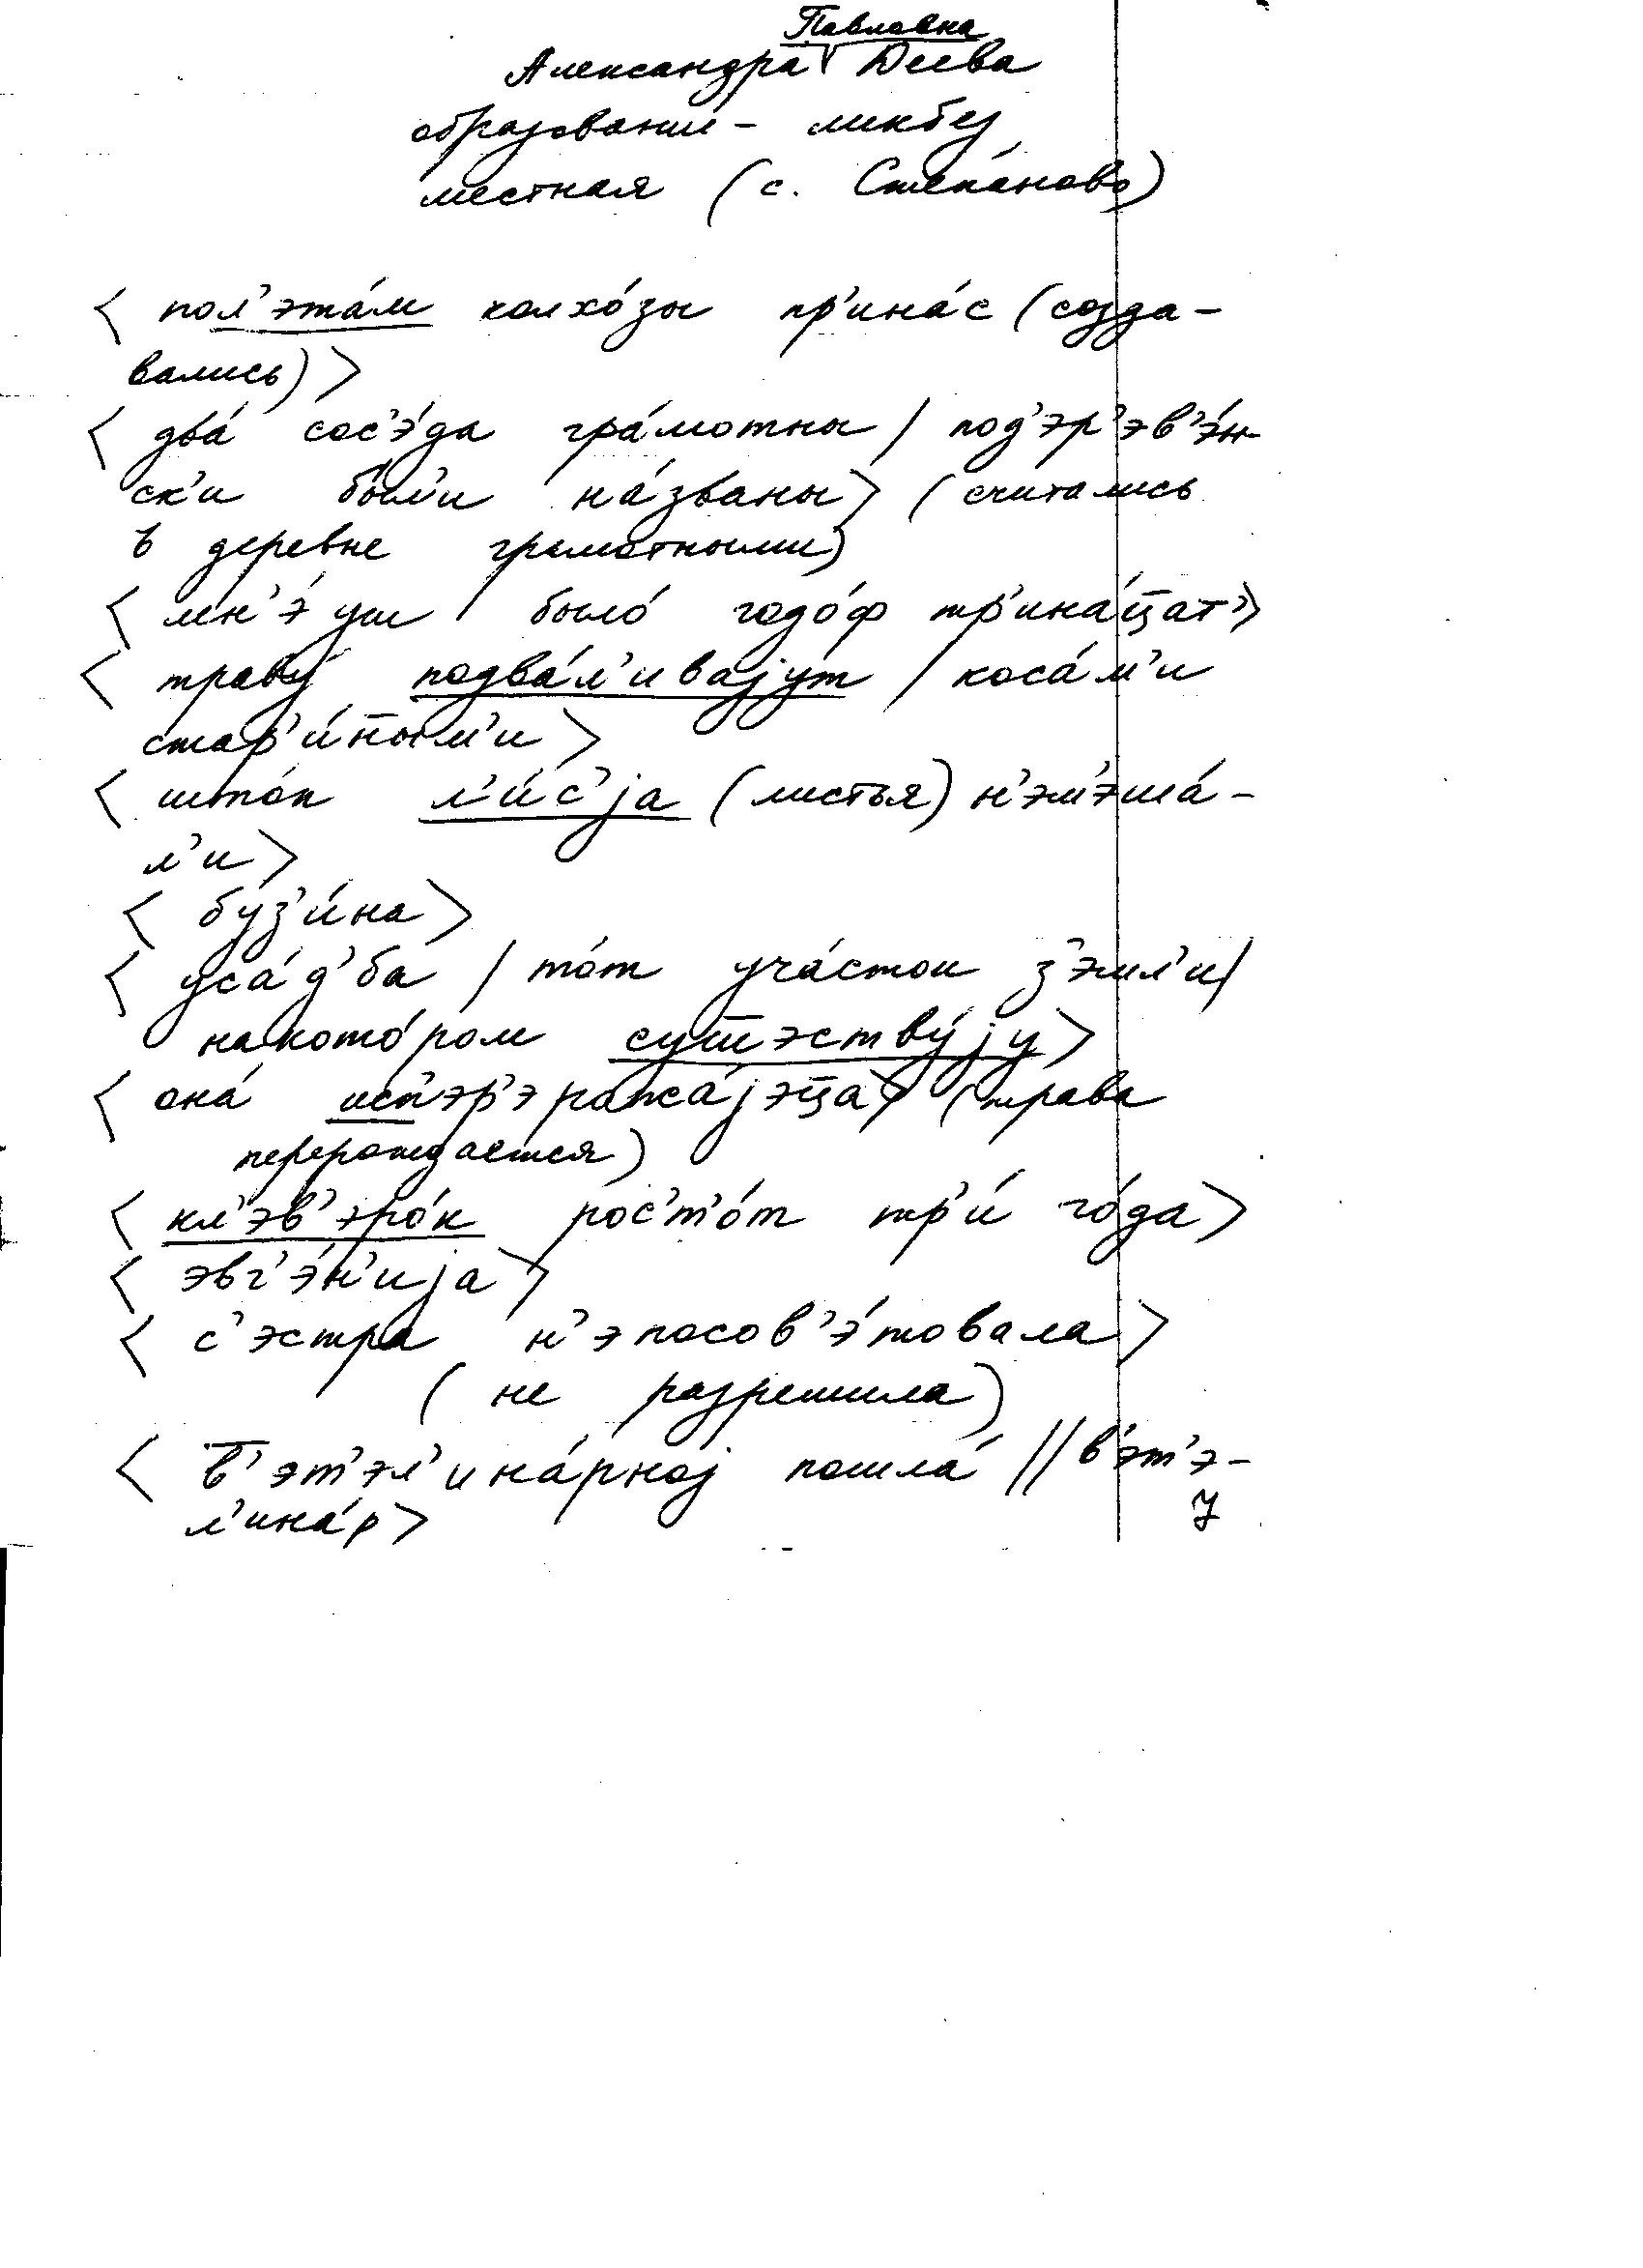 Павловна
Александра Деева
образование - ликбез
местная (с. Степа́ново)
< пол’эта́м колхо́зы пр’ина́с (созда-
вались) >
< два́ сос’э́да гра́мотны / под’эр’эв’э́н-
ск’и был’и на́званы > (считались
в деревне грамотными)
< мн’э́ уш было́ годо́ф тр’ина́ц̄ат’ >
< траву́ подва́л’ивајут / коса́м’и
стар’и́н̄ым’и >
< што́п л’и́с’ја (листья) н’эм’эша́-
л’и >
< буз’и́на >
< уса́д’ба / то́т уча́сток з’эмл’и /
накото́ром суш̄эству́ју >
< она́ исп’эр’эрожа́јэц̄а > (трава
перерождается)
< кл’эв’эро́к рос’т’о́т тр’и́ го́да >
< эвг’э́н’ија >
< с’эстра н’эпосов’э́товала >
(не разрешила)
< в̄’эт’эл’ина́рној пошла́ // в’эт’э-
л’ина́р >
7